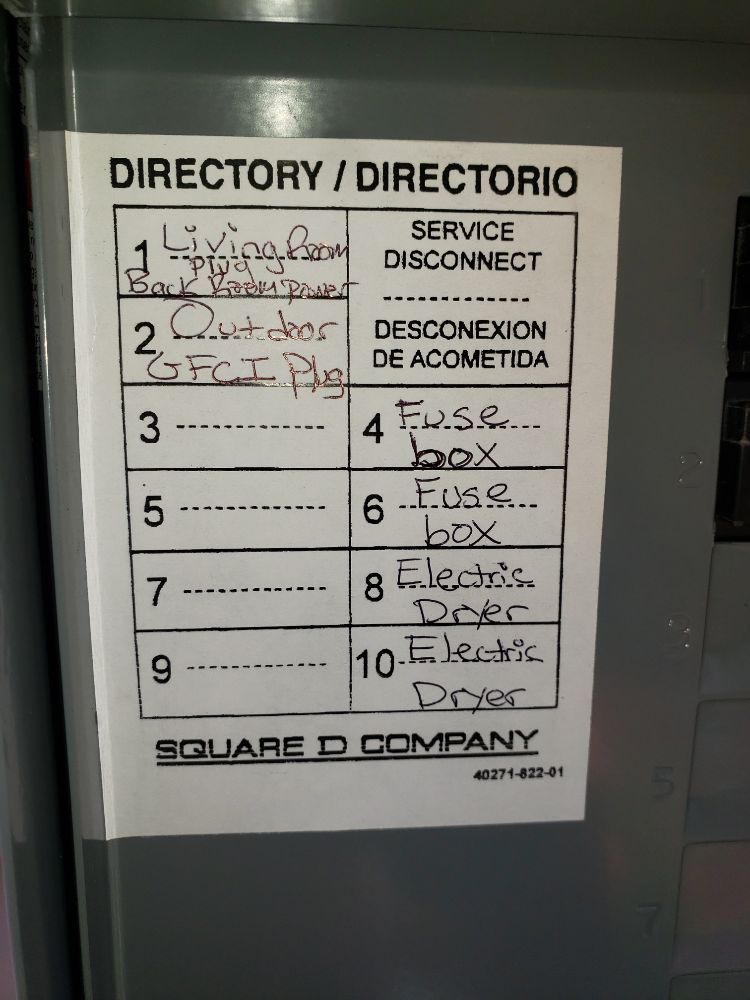 DIRECTORY / DIRECTORIO
1 Living Room
Plug
Back Room power
SERVICE
DISCONNECT
DESCONEXION
DE ACOMETIDA
2 Outdoor
GFCI Plug
3
4 Fuse
box
5
6 Fuse
box
7
8 Electric
Dryer
9
10 Electric
Dryer
SQUARE D COMPANY
40271-822-01
1
2
3
5
7